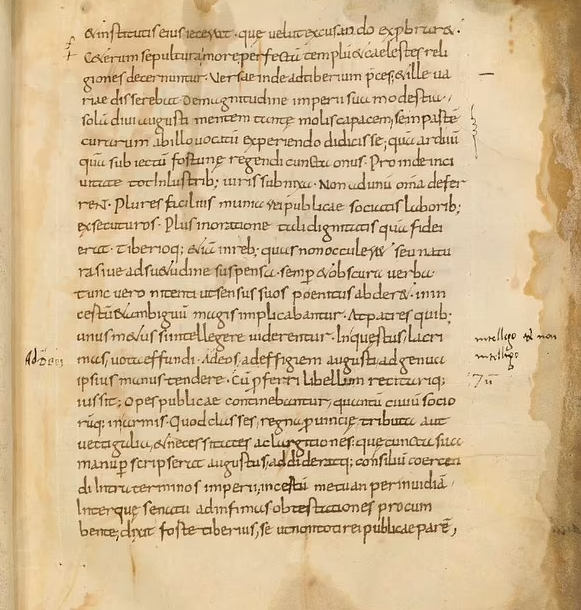 & institutis eius iecerat · que velut excusando exprobrar& ·
C&erum sepultura more perfecta templū & caelestes reli
giones decernuntur · Versae inde ad tiberium p̄ces, & ille va
riae disserebat de magnitudine imperii sua modestia ·
solā divi augusti mentem tantę molis capacem, se in partē
curarum ab illo vocatū experiendo didicisse, quā arduū
quā subiectū fortunę regendi cuncta onus · Proinde inci
vitate tot inlustrib; viris subnixa · Non ad unū omīa defer
rent · Plures facilius munia reipublicae sociatis laborib;
exsecuturos · Plus in oratione tali dignitatis quā fidei
erat · tiberioq; &iā in reb; quas non occuler& seu natu
ra sive adsu&udine suspensa semp & obscura verba
tunc vero nitenti ut sensus suos poenitus abder& · in in
certū & ambiguū magis implicabantur · At patres quib;
unus m&us si intellegere viderentur · In questus, lacri
mas, vota effundi · Ad eos, ad effigiem augusti, ad genua
ipsius manus tendere · Cū pferri libellum recitariq;
iussit; Opes publicae continebantur, quantū civiū socio
rūq; in armis · Quod classes, regna, p̱vincię, tributa aut
vectigalia, & necessitates ac largitiones · que cuncta sua
manu p̱scripserat augustus, addideratq; consiliū coercen
di intra terminos imperii, incertū metu an per invidiā ·
Interque senatu ad infimas obtestationes procum
bente, dixit forte tiberius, se ut non toti rei publicae parē,
intellego et non
intellego